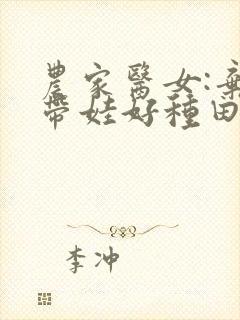 農家醫女:棄
帶娃好種田
李冲